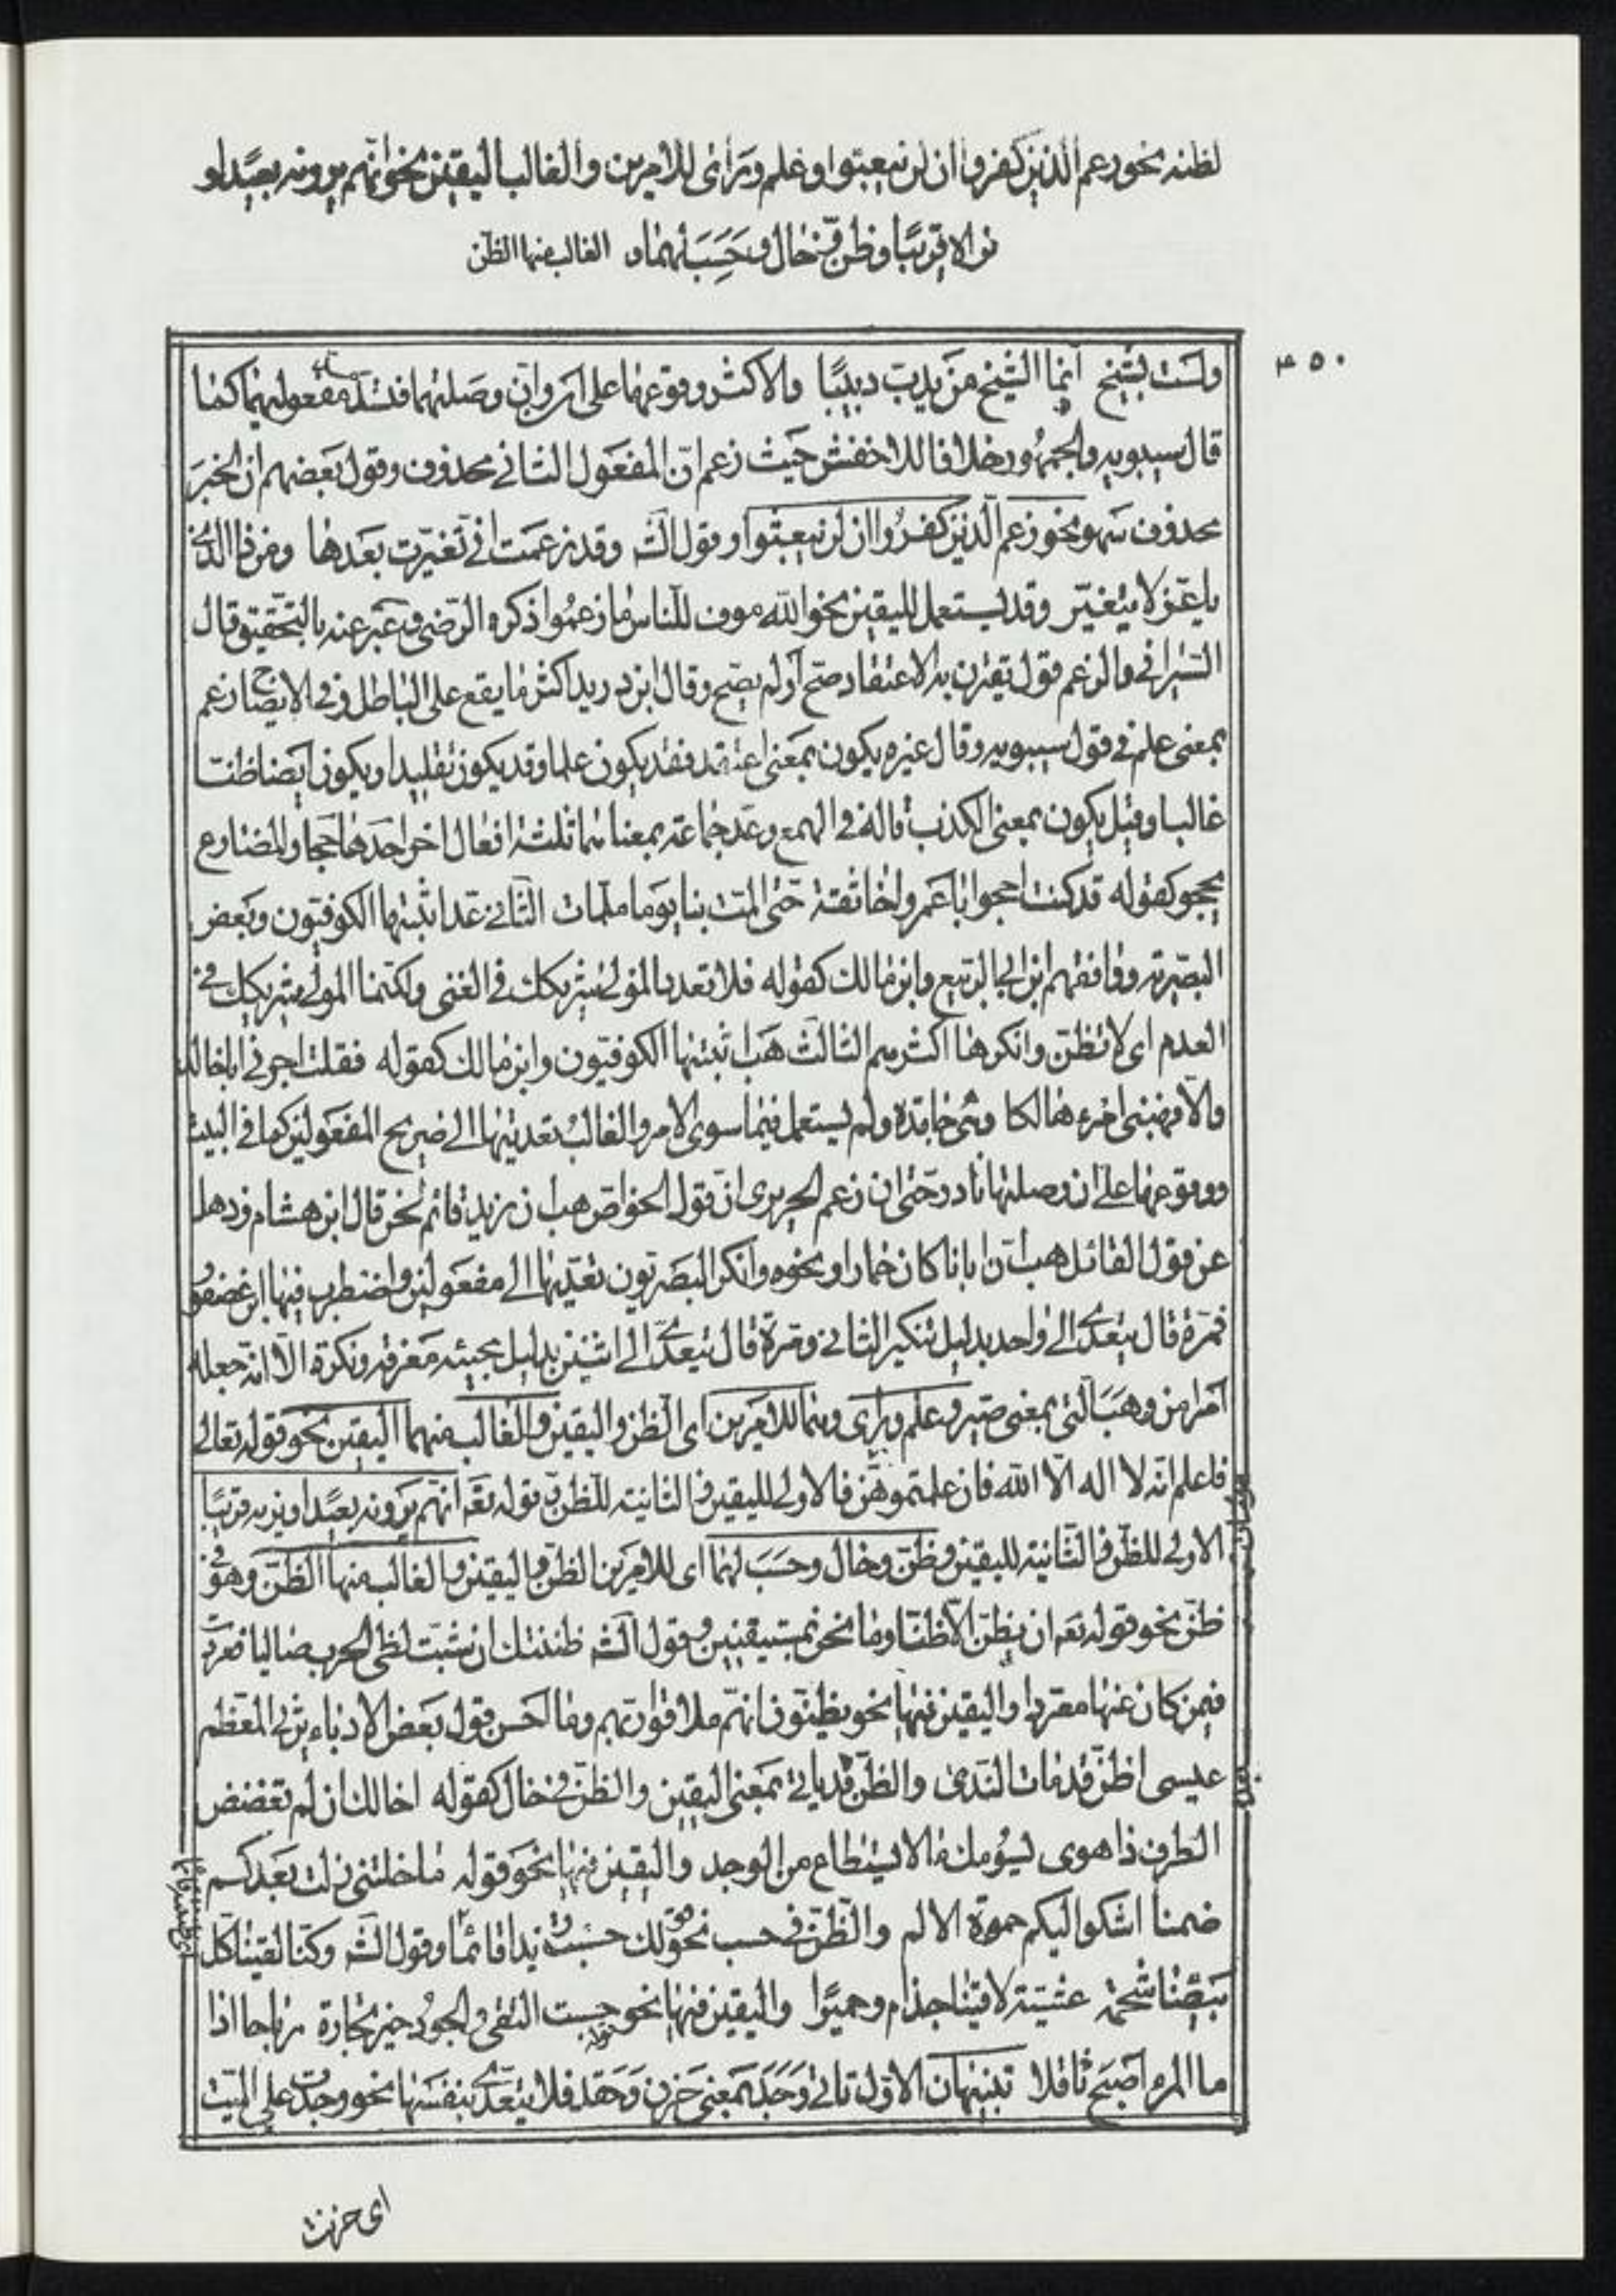 لظنه نحو زعم الذين كفروا ان لن يبعثوا وعلم ورأى للامرين والغالب اليقين نحو انهم يرونه بعيدا و
نراه قريبا وظن وخال وحسب لهما و الغالب فيها الظن
٤٥٠
ولست بشيخ انما الشيخ من يدب دبيبا والاكثر وقوعها على ان وان وصلتهما فتسد مفعوليهما كما
قال سيبويه والجمهور خلافا للاخفش حيث زعم ان المفعول الثاني محذوف وقول بعضهم ان الخبر
محذوف سهو نحو زعم الذين كفروا ان لن يبعثوا وقول الشاعر وقد زعمت اني تغيرت بعدها ومن ذا الذي
ياعز لا يتغير وقد يستعمل لليقين نحو الله موف للناس ما زعموا ذكره الرضي وعبر عنه بالتحقيق قال
السيرافي والزعم قول يقترن به الاعتقاد صح او لم يصح وقال ابن دريد اكثر ما يقع على الباطل وفي الايضاح زعم
بمعنى علم في قول سيبويه وقال غيره يكون بمعنى اعتقد فقد يكون علما وقد يكون تقليدا ويكون ايضا ظنا
غالبا وقيل يكون بمعنى الكذب قاله في الهمع وعد جماعة بمعناهما ثلثة افعال اخر احدها حجا والمضارع
يحجو كقوله قد كنت احجو ابا عمرو اخا ثقة حتى المت بنا يوما ملمات الثاني عد اثبتها الكوفيون وبعض
البصرية ووافقهم ابن ابي الربيع وابن مالك كقوله فلا تعدد المولى شريكك في الغنى ولكنما المولى شريكك في
العدم اي لا تظن وانكرها اكثرهم الثالث هب اثبتها الكوفيون وابن مالك كقوله فقلت اجرني ابا خالد
والا فهبني امرء هالكا وهي جامدة ولم يستعمل فيما سوى الامر والغالب تعديتها الى صريح المفعولين كما في البيت
ووقوعها على ان وصلتها نادر حتى ان زعم الحريري ان قول الخواص هب ان زيد قائم لحن قال ابن هشام وذهل
عن قول القائل هب ان ابانا كان حمارا ونحوه وانكر البصريون تعديتها الى مفعولين واضطرب فيها ابن عصفور
فمرة قال يتعدى الى واحد بدليل تنكير الثاني ومرة قال يتعدى الى اثنين بدليل مجيئه معرفة ونكرة الا انه جعله
امرا من وهب التي بمعنى صير وعلم ورأى وهما للامرين اي الظن واليقين والغالب منهما اليقين نحو قوله تعالى
فاعلم انه لا اله الا الله فان علمتموهن فالاولى لليقين والثانية للظن وقوله تعه انهم يرونه بعيدا ونريه قريبا
الاولى للظن والثانية لليقين وظن وخال وحسب لهما اي للامرين الظن واليقين والغالب منها الظن وهو في
ظن نحو قوله تعه ان نظن الا ظنا وما نحن بمستيقنين وقول الشاعر ظننتك ان شبت لظى الحرب صاليا فعردت
فيمن كان عنها معردا واليقين فيها نحو يظنون انهم ملاقوا ربهم وما احسن قول بعض الادباء يرثي المعظم
عيسى اظن قد مات الندى والظن قد ياتي بمعنى اليقين والظن في خال كقوله اخالك ان لم تغضض
الطرف ذا هوى يسؤمك ما لا يستطاع من الوجد واليقين فيها نحو قوله ما خلتني زلت بعدكم
ضمنا اشكو اليكم حموة الالم والظن في حسب نحو قولك حسبت زيدا قائما وقول الشاعر وكنا لقينا كل
بيضاء شحمة عشية لاقينا جذام وحميرا واليقين فيها نحو قوله حسبت التقى والجود خير تجارة رباحا اذا
ما المرء اصبح ثاقلا تنبيهان الاول تاتي وجد بمعنى حزن وحقد فلا يتعدى بنفسها نحو وجدت على الميت
اي حزنت